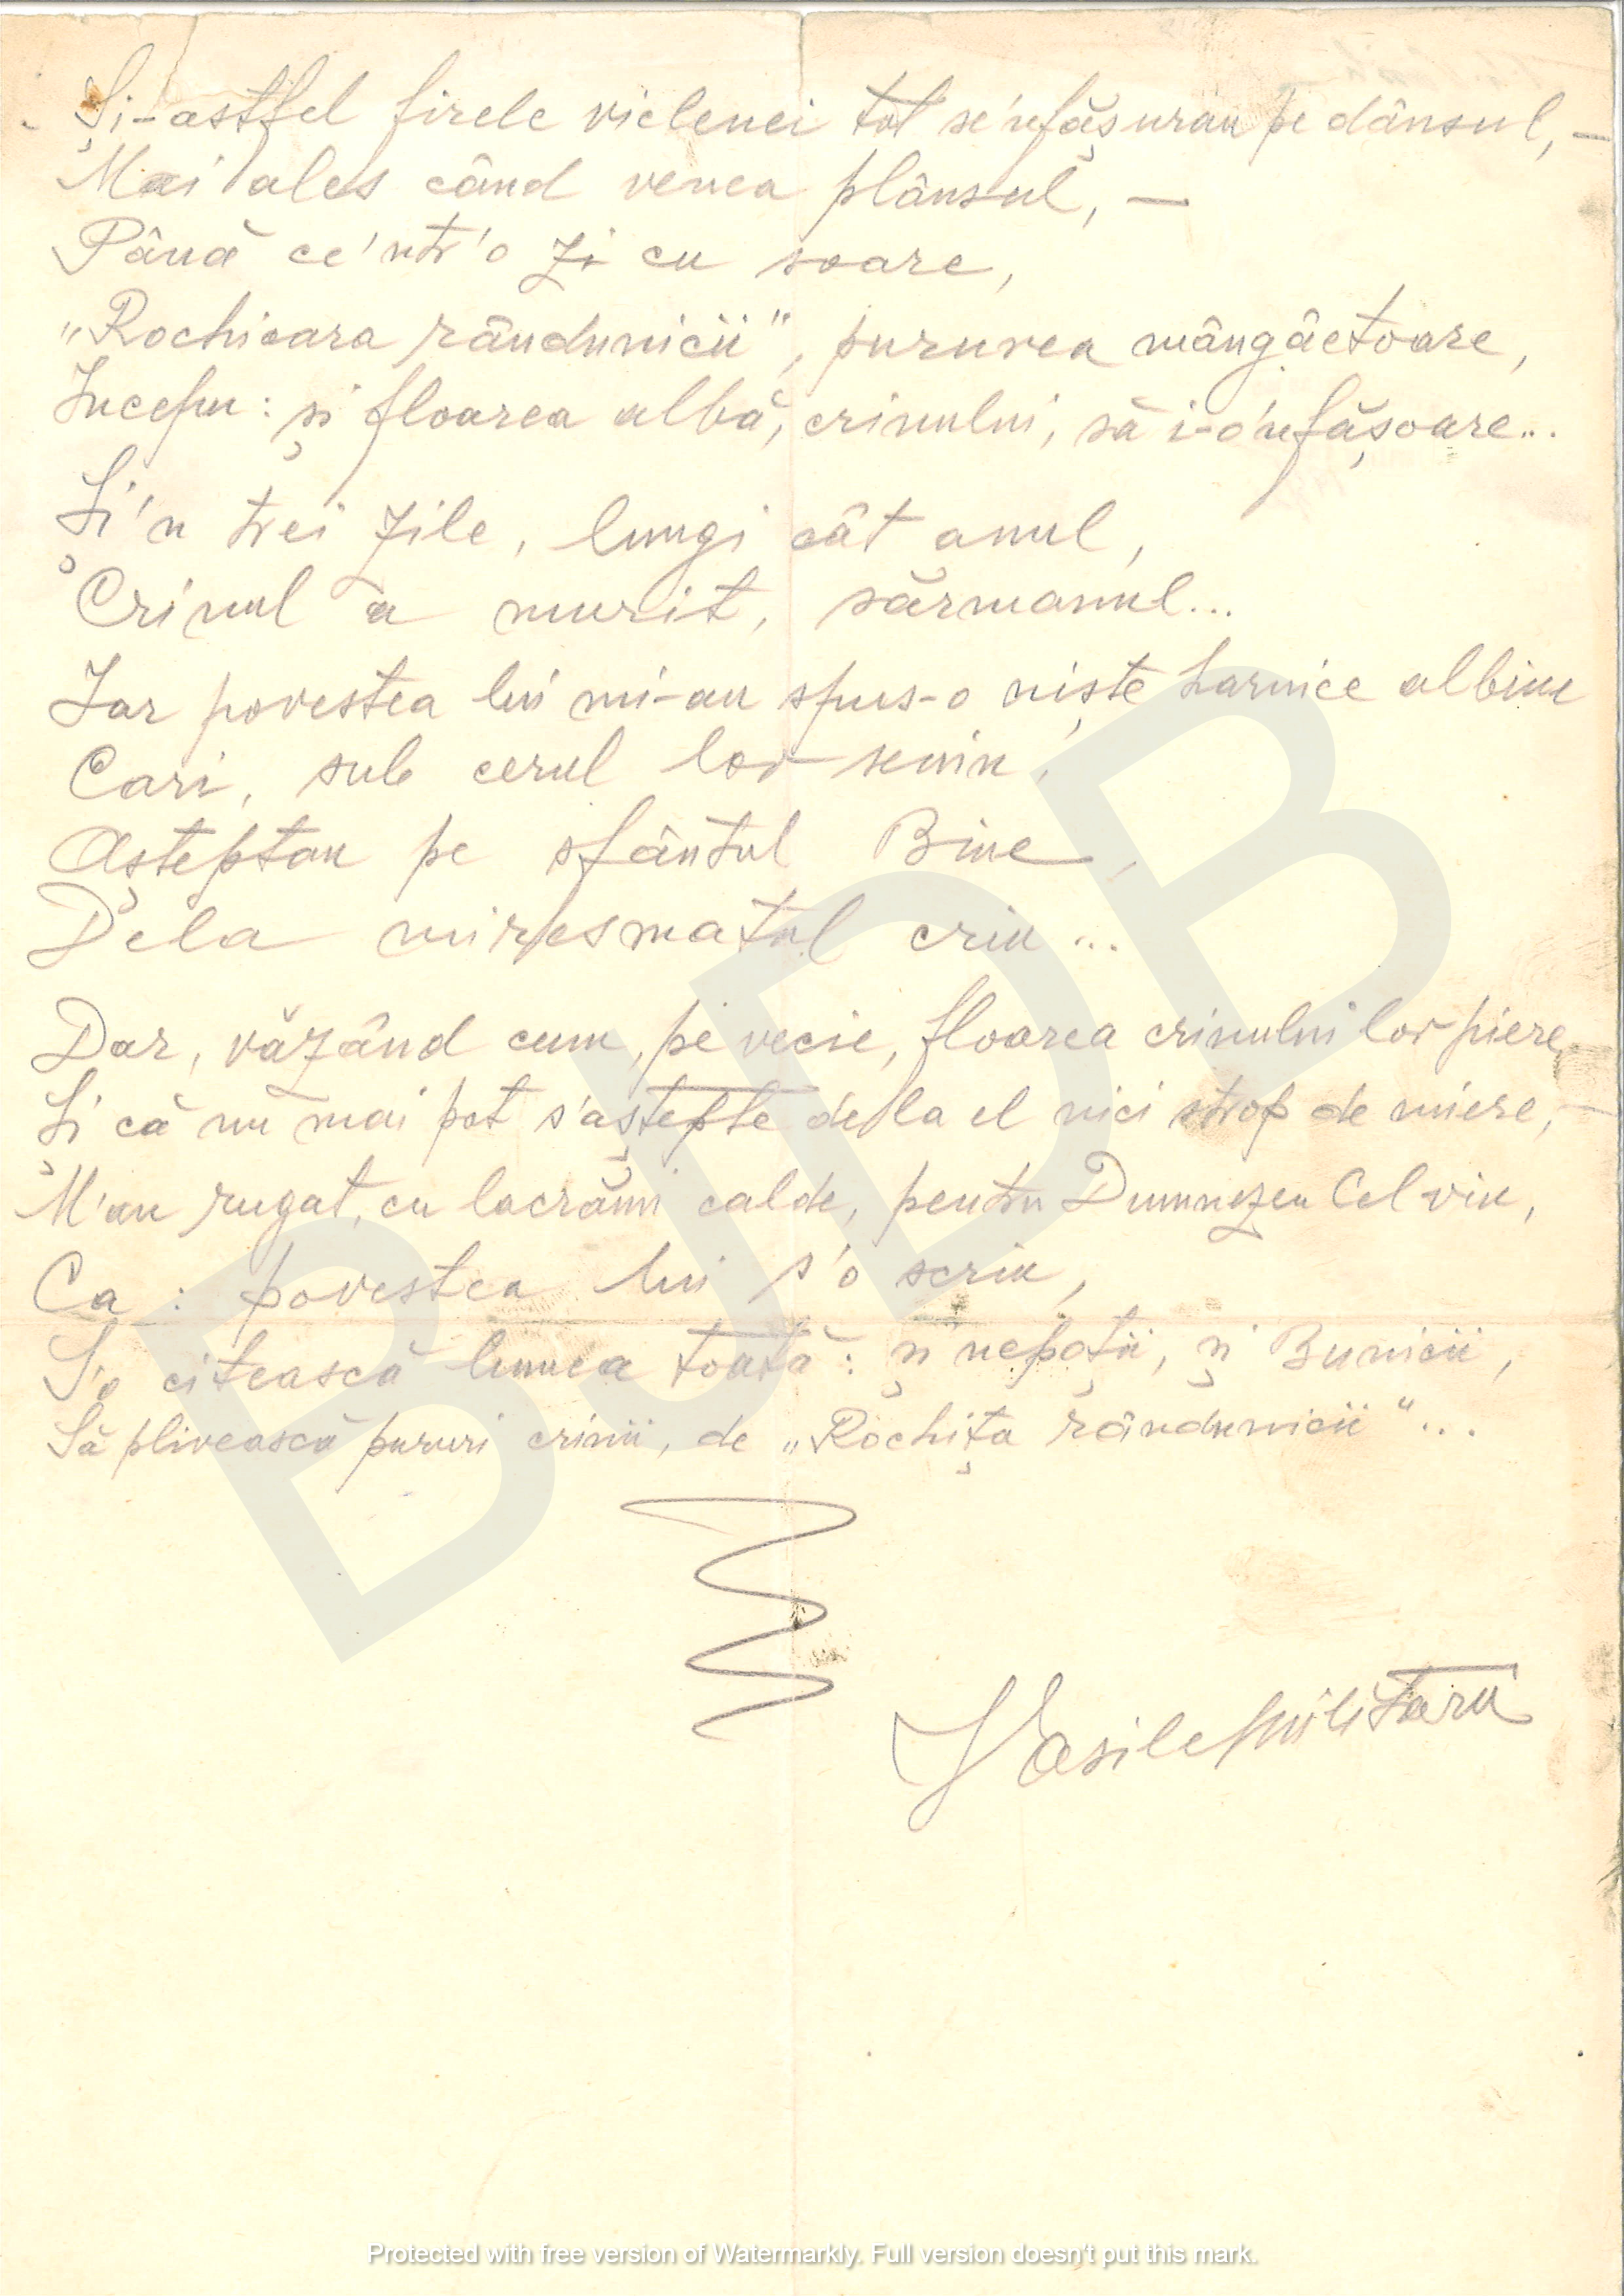 Și-astfel firele vicleniei tot se'nfășurau pe dânsul, —
Mai ales când venea plânsul, —
Până ce'ntr'o zi cu soare,
„Rochioara rândunicii", pururea mângâetoare,
Începu: și floarea albă, crinului, să i-o'nfășoare...
Și'n trei zile, lungi cât anul,
Crinul a murit, sărmanul...
Iar povestea lui mi-au spus-o niște harnice albine
Cari, sub cerul lor senin,
Așteptau pe sfântul Bine,
Dela miresmatul crin...
Dar, văzând cum, pe vecie, floarea crinului lor piere,
Și că nu mai pot s'aștepte dela el nici strop de miere, —
M'au rugat, cu lacrămi calde, pentru Dumnezeu Cel viu,
Ca: povestea lui s'o scriu,
S'o citească lumea toată: și nepoții, și Bunicii,
Să plivească pururi crinii, de „Rochița rândunicii"...
Vasile Militaru
BJDB
Protected with free version of Watermarkly. Full version doesn't put this mark.